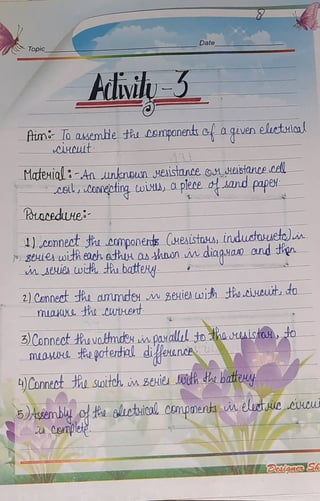 8
Topic
Date
Activity - 3
Aim:- To assemble the components of a given electrical
circuit
Material :- An unknown resistance or resistance cell
coil, connecting wires, a piece of sand paper.
Procedure:-
1) connect the components (resistors, inductors etc) in
series with each other as shown in diagram and then
in series with the battery
2) Connect the ammeter in series with the circuit, to
measure the current
3) Connect the voltmeter in parallel to the resistor, to
measure the potential difference.
4) Connect the switch in series with the battery
5) Assembly of the electrical components in electric circui
is complete.
Designer Sh